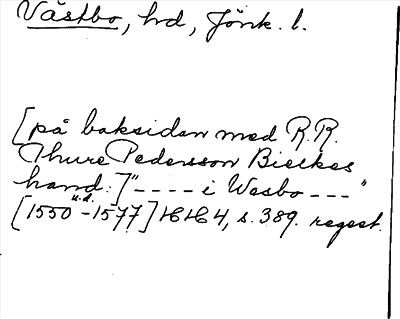 Västbo, hd, Jönk. l.
[på baksidan med R.R.
Thure Pedersson Bielkes
hand:] "---- i Wesbo ---"
[1550 u.d. -1577] HH 4, s. 389. regest.